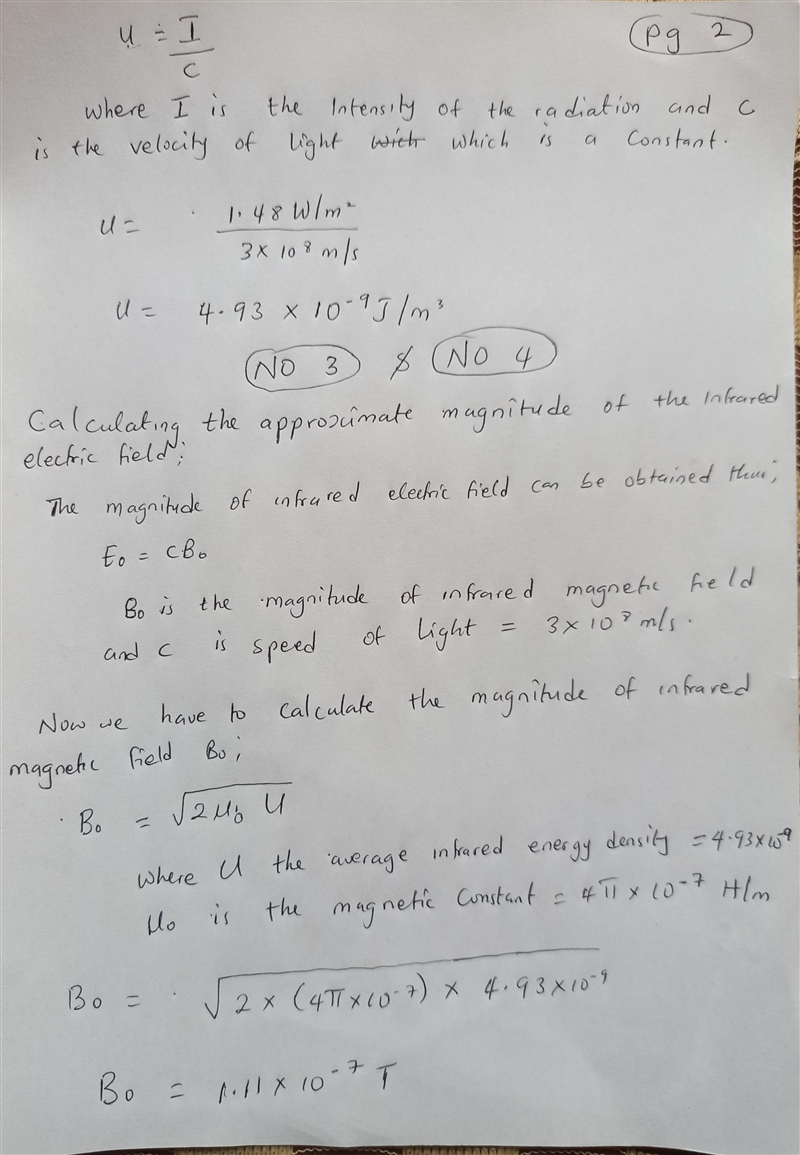 pg 2
U = I/C
where I is the Intensity of the radiation and C
is the velocity of light which is a Constant.
U = 1.48 W/m²/3 × 10⁸ m/s
U = 4.93 × 10⁻⁹ J/m³
NO 3 & NO 4
Calculating the approximate magnitude of the Infrared
electric field;
The magnitude of infrared electric field can be obtained thus;
E₀ = CB₀
B₀ is the magnitude of infrared magnetic field
and C is speed of light = 3 × 10⁸ m/s.
Now we have to calculate the magnitude of infrared
magnetic field B₀;
B₀ = √2μ₀ U
where U the average infrared energy density = 4.93×10⁻⁹
μ₀ is the magnetic Constant = 4π × 10⁻⁷ H/m
B₀ = √2 × (4π×10⁻⁷) × 4.93×10⁻⁹
B₀ = 1.11 × 10⁻⁷ T